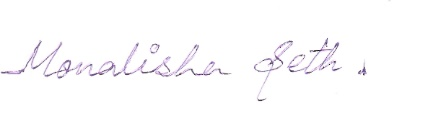 Monalisha Seth.